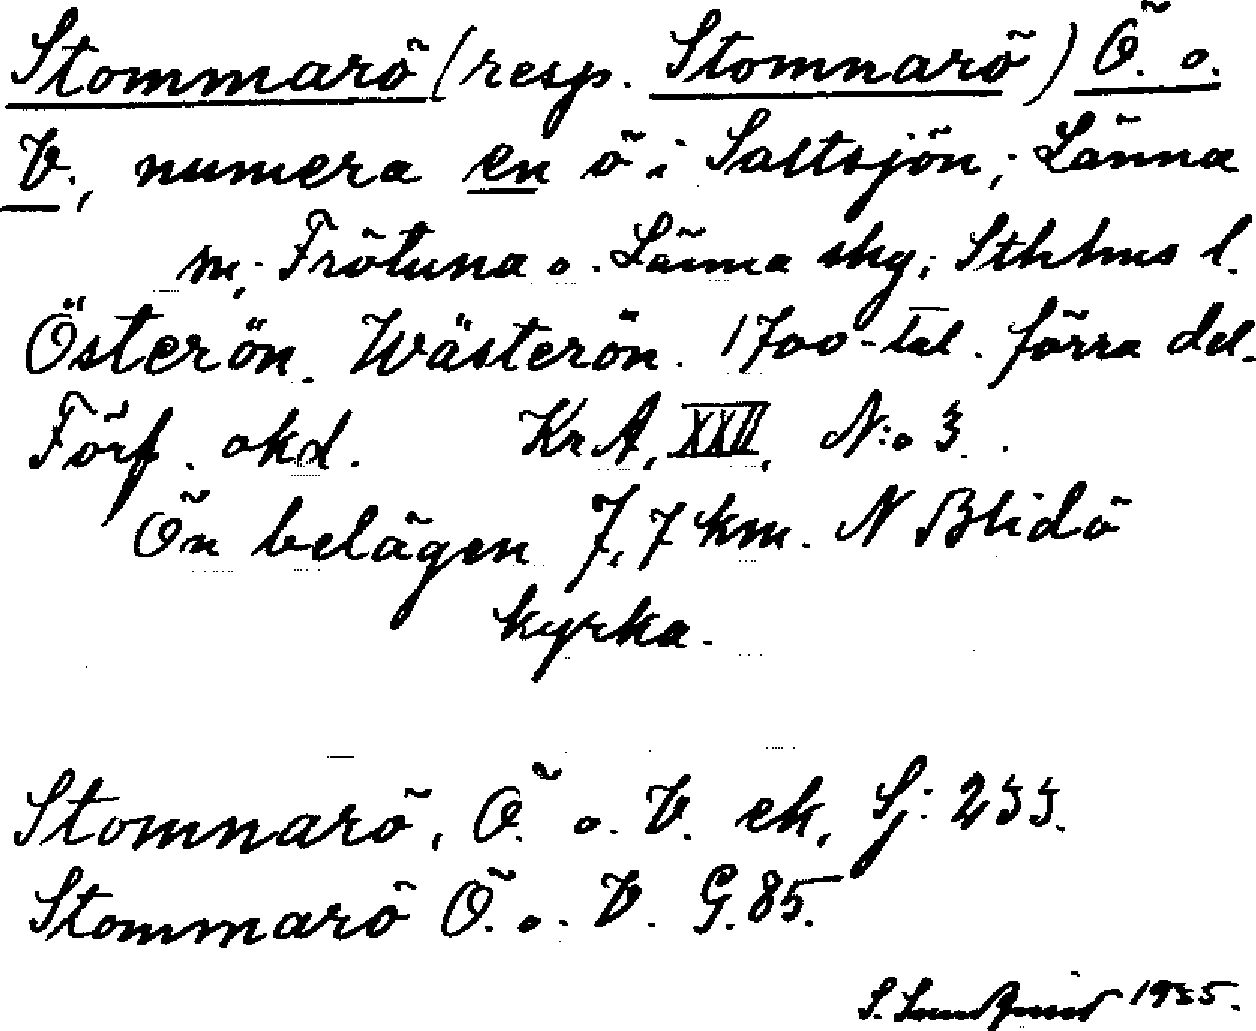 Stommarö (resp. Stomnarö) Ö. o.
V., numera en ö i Saltsjön; Länna
Frötuna o. Länna skg; Sthlms l.
Österön. Wästerön. 1700-tal. förra del.
Förf. okd. Kr A, XXII, N:o 3.
Ön belägen 7,7 km. N Blidö
kyrka.
Stomnarö, Ö. o. V. ek. Sj: 233.
Stommarö Ö. o. V. G. 85.
S. Lundqvist 1935.